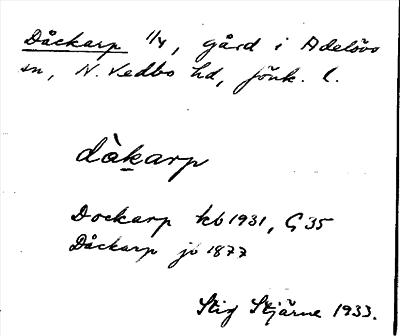 Dåckarp 1/4, gård i Adelövs
sn, N. Vedbo hd, Jönk. l.
dàkarp
Dockarp kb 1931, G 35
Dåckarp jo 1877
Stig Stjärne 1933.